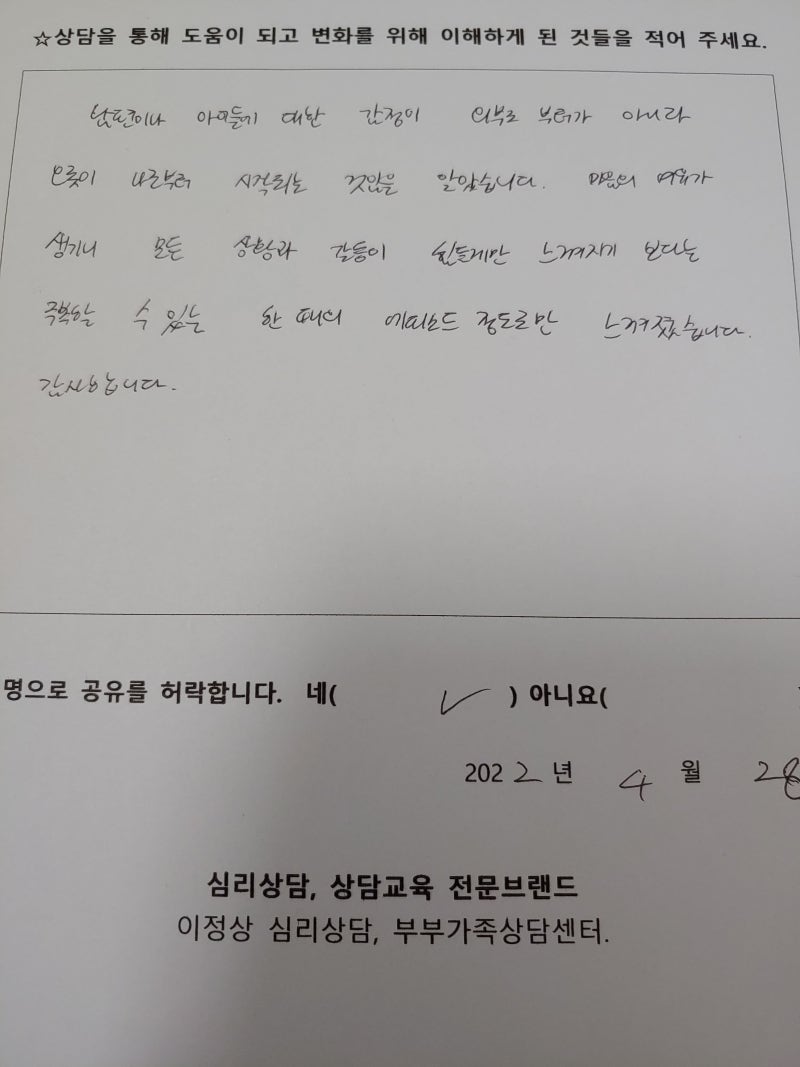 ☆상담을 통해 도움이 되고 변화를 위해 이해하게 된 것들을 적어 주세요.
남편이나 아이들에 대한 감정이 외부로 부터가 아니라
오롯이 나로부터 시작되는 것임을 알았습니다. 마음의 여유가
생기니 모든 상황과 갈등이 힘들게만 느껴지기 보다는
극복할 수 있는 한 때의 에피소드 정도로만 느껴졌습니다.
감사합니다.
명으로 공유를 허락합니다. 네( ✓ ) 아니요(
2022년 4월 28
심리상담, 상담교육 전문브랜드
이정상 심리상담, 부부가족상담센터.